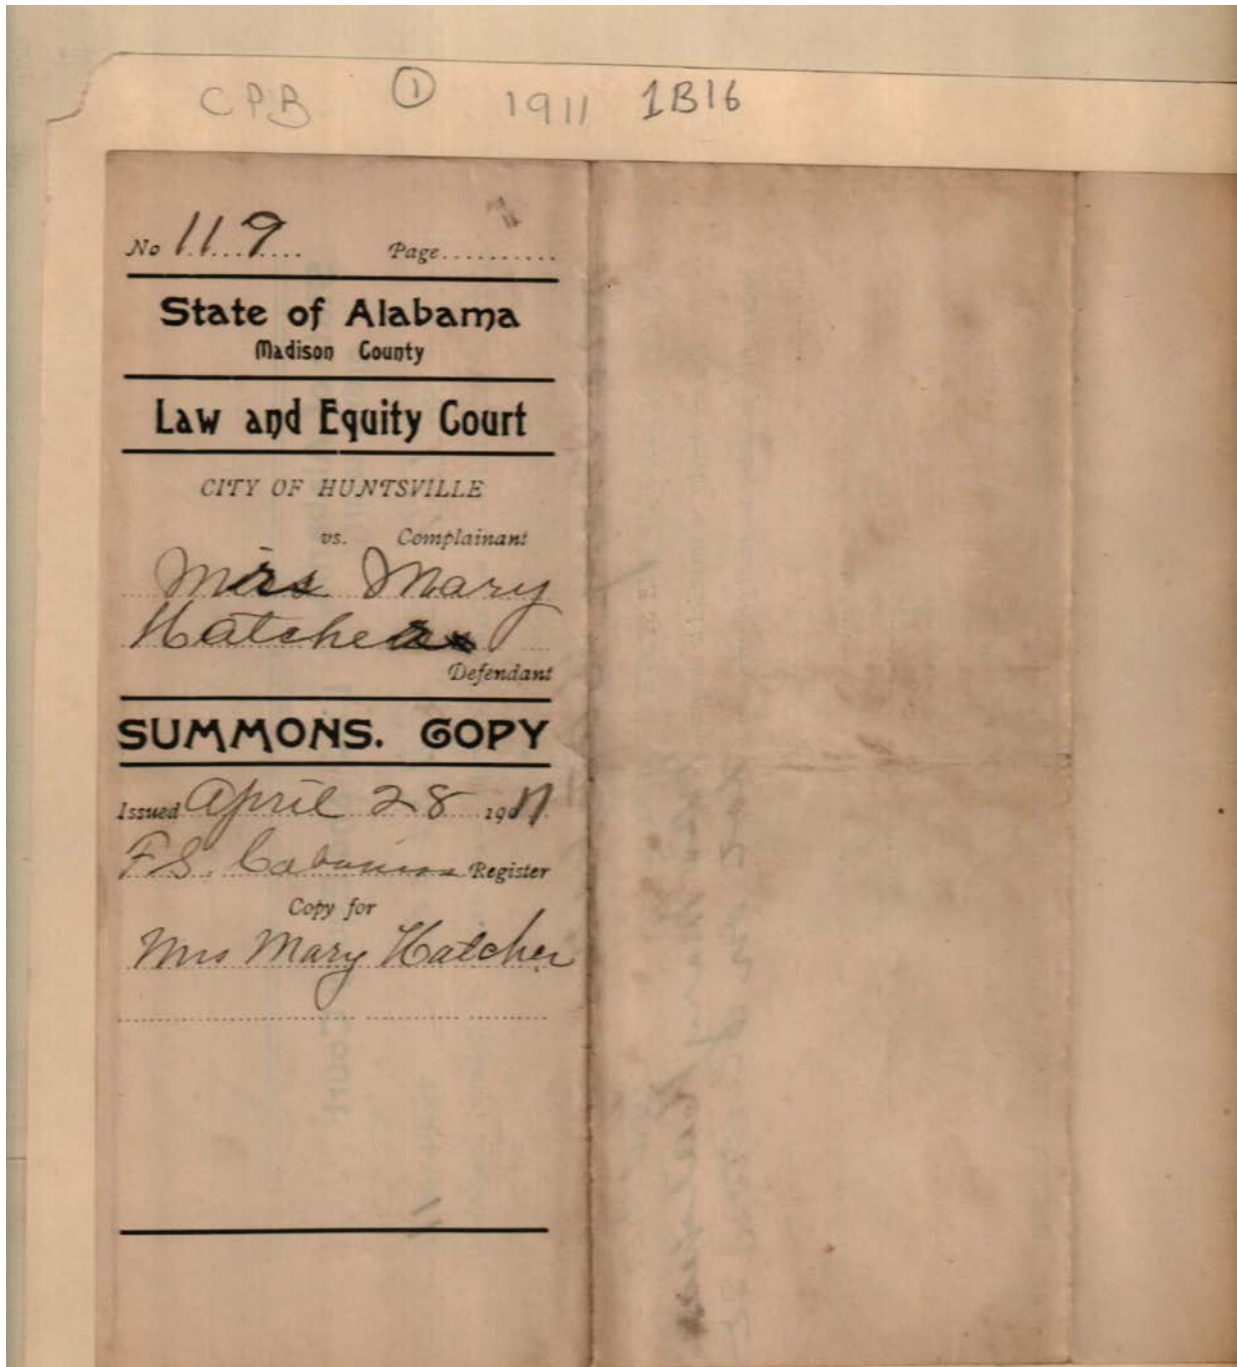 CPB ① 1911 1B16
No 119 Page..........
State of Alabama
Madison County
Law and Equity Court
CITY OF HUNTSVILLE
vs. Complainant
Mrs Mary
Hatcher
Defendant
SUMMONS. COPY
Issued April 28 1911
F.S. Cabaniss Register
Copy for
Mrs Mary Hatcher